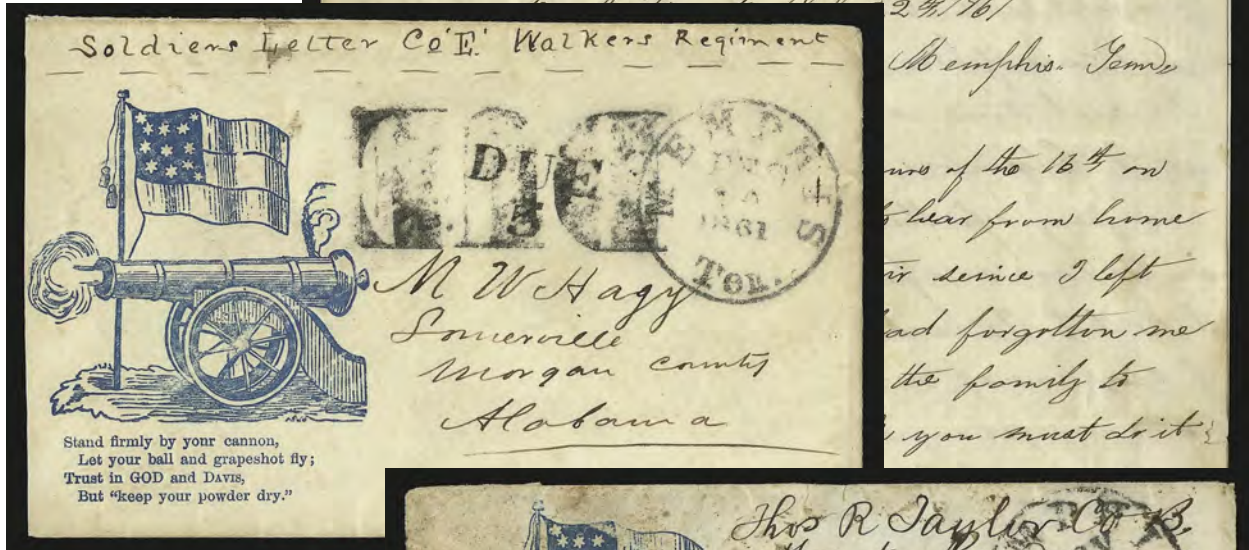 Soldiers Letter Co "E" Walkers Regiment
DUE
5
MEMPHIS
DEC
1861
Ten.
M W Hagy
Somerville
Morgan County
Alabama
Stand firmly by your cannon,
Let your ball and grapeshot fly;
Trust in GOD and DAVIS,
But "keep your powder dry."
Memphis. Tenn
of the 16th on
hear from home
I left
forgotton me
the family to
you must do it
Thos R Taylor Co B,